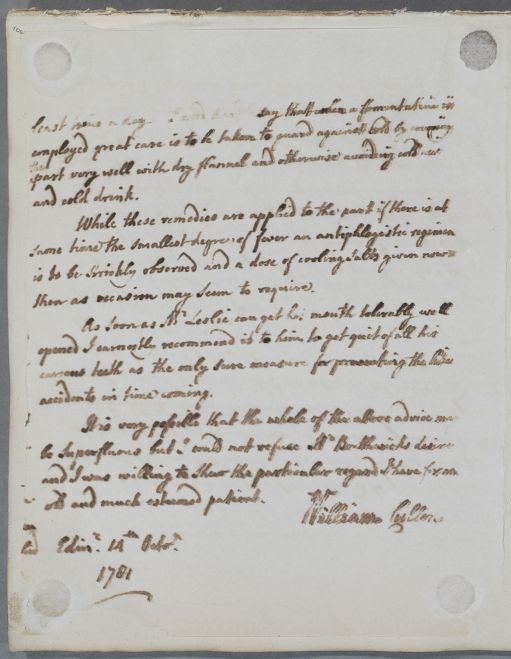 least twice a day. say that when a fomentation is
employed great care is to be taken to guard against cold by covering
the part very well with dry flannel and otherwise avoiding cold air
and cold drink.
While these remedies are applied to the part if there is at
same time the smallest degree of fever an antiphlogistic regimen
is to be strickly observed and a dose of cooling salts given now &
then as occasion may seem to require.
As soon as Mr. Leslie can get his mouth tolerably well
opened I earnestly recommend it to him to get quit of all his
carious teeth as the only sure measure for preventing the like
accidents in time coming.
It is very possible that the whole of the above advice may
be superfluous but I could not refuse Mr. Borthwicks desire
and I was willing to shew the particular regard I have for my
old and much esteemed patient.
William Cullen
Edinr. 14th Octor.
1781